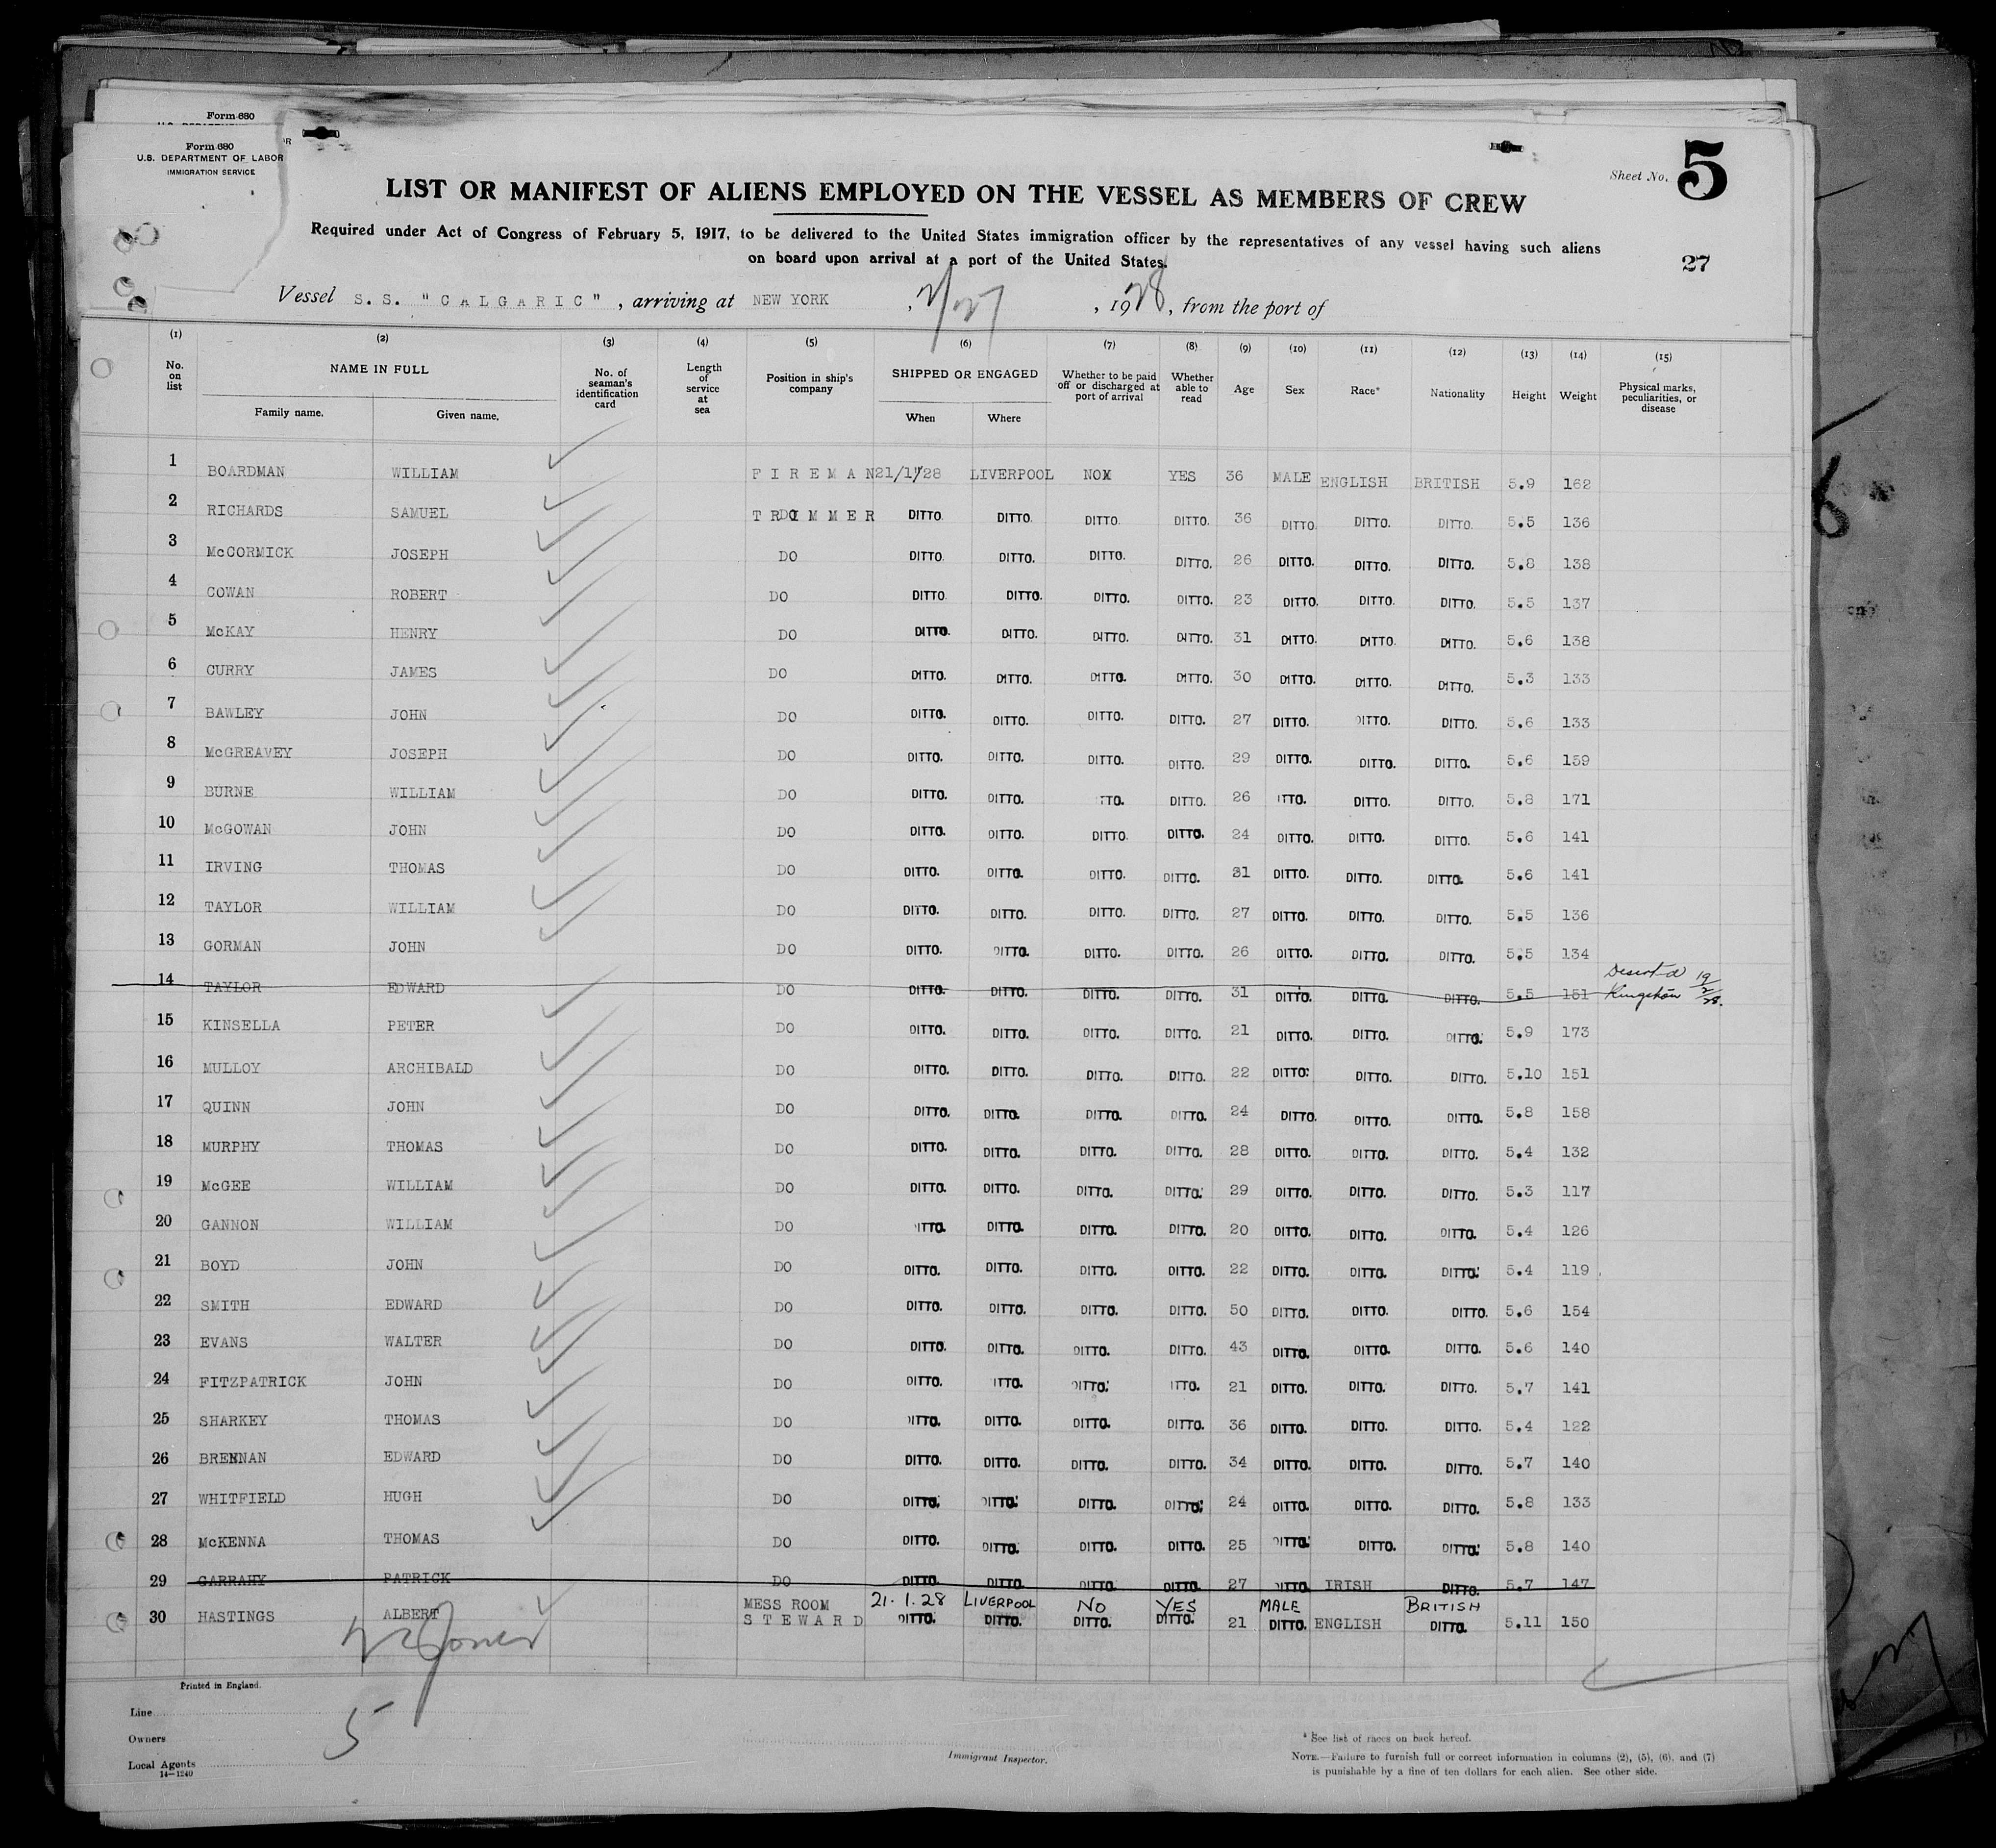 Form 680
Form 680
U.S. DEPARTMENT OF LABOR
IMMIGRATION SERVICE
Sheet No. 5
LIST OR MANIFEST OF ALIENS EMPLOYED ON THE VESSEL AS MEMBERS OF CREW
Required under Act of Congress of February 5, 1917, to be delivered to the United States immigration officer by the representatives of any vessel having such aliens
on board upon arrival at a port of the United States.
27
Vessel S.S. "CALGARIC", arriving at NEW YORK, 2/27, 1928, from the port of
(1) (2) (3) (4) (5) (6) (7) (8) (9) (10) (11) (12) (13) (14) (15)
No. on list NAME IN FULL Family name. Given name. No. of seaman's identification card Length of service at sea Position in ship's company SHIPPED OR ENGAGED When Where Whether to be paid off or discharged at port of arrival Whether able to read Age Sex Race* Nationality Height Weight Physical marks, peculiarities, or disease
1 BOARDMAN WILLIAM FIREMAN 21/1/28 LIVERPOOL NO YES 36 MALE ENGLISH BRITISH 5.9 162
2 RICHARDS SAMUEL TRIMMER DITTO. DITTO. DITTO. DITTO. 36 DITTO. DITTO. DITTO. 5.5 136
3 McCORMICK JOSEPH DO DITTO. DITTO. DITTO. DITTO. 26 DITTO. DITTO. DITTO. 5.8 138
4 COWAN ROBERT DO DITTO. DITTO. DITTO. DITTO. 23 DITTO. DITTO. DITTO. 5.5 137
5 McKAY HENRY DO DITTO. DITTO. DITTO. DITTO. 31 DITTO. DITTO. DITTO. 5.6 138
6 CURRY JAMES DO DITTO. DITTO. DITTO. DITTO. 30 DITTO. DITTO. DITTO. 5.3 133
7 BAWLEY JOHN DO DITTO. DITTO. DITTO. DITTO. 27 DITTO. DITTO. DITTO. 5.6 133
8 McGREAVEY JOSEPH DO DITTO. DITTO. DITTO. DITTO. 29 DITTO. DITTO. DITTO. 5.6 159
9 BURNE WILLIAM DO DITTO. DITTO. DITTO. DITTO. 26 DITTO. DITTO. DITTO. 5.8 171
10 McGOWAN JOHN DO DITTO. DITTO. DITTO. DITTO. 24 DITTO. DITTO. DITTO. 5.6 141
11 IRVING THOMAS DO DITTO. DITTO. DITTO. DITTO. 31 DITTO. DITTO. DITTO. 5.6 141
12 TAYLOR WILLIAM DO DITTO. DITTO. DITTO. DITTO. 27 DITTO. DITTO. DITTO. 5.5 136
13 GORMAN JOHN DO DITTO. DITTO. DITTO. DITTO. 26 DITTO. DITTO. DITTO. 5.5 134
14 TAYLOR EDWARD DO DITTO. DITTO. DITTO. DITTO. 31 DITTO. DITTO. DITTO. 5.5 151 Deserted Kingston 19/2/28.
15 KINSELLA PETER DO DITTO. DITTO. DITTO. DITTO. 21 DITTO. DITTO. DITTO. 5.9 173
16 MULLOY ARCHIBALD DO DITTO. DITTO. DITTO. DITTO. 22 DITTO. DITTO. DITTO. 5.10 151
17 QUINN JOHN DO DITTO. DITTO. DITTO. DITTO. 24 DITTO. DITTO. DITTO. 5.8 158
18 MURPHY THOMAS DO DITTO. DITTO. DITTO. DITTO. 28 DITTO. DITTO. DITTO. 5.4 132
19 McGEE WILLIAM DO DITTO. DITTO. DITTO. DITTO. 29 DITTO. DITTO. DITTO. 5.3 117
20 GANNON WILLIAM DO DITTO. DITTO. DITTO. DITTO. 20 DITTO. DITTO. DITTO. 5.4 126
21 BOYD JOHN DO DITTO. DITTO. DITTO. DITTO. 22 DITTO. DITTO. DITTO. 5.4 119
22 SMITH EDWARD DO DITTO. DITTO. DITTO. DITTO. 50 DITTO. DITTO. DITTO. 5.6 154
23 EVANS WALTER DO DITTO. DITTO. DITTO. DITTO. 43 DITTO. DITTO. DITTO. 5.6 140
24 FITZPATRICK JOHN DO DITTO. DITTO. DITTO. DITTO. 21 DITTO. DITTO. DITTO. 5.7 141
25 SHARKEY THOMAS DO DITTO. DITTO. DITTO. DITTO. 36 DITTO. DITTO. DITTO. 5.4 122
26 BRENNAN EDWARD DO DITTO. DITTO. DITTO. DITTO. 34 DITTO. DITTO. DITTO. 5.7 140
27 WHITFIELD HUGH DO DITTO. DITTO. DITTO. DITTO. 24 DITTO. DITTO. DITTO. 5.8 133
28 McKENNA THOMAS DO DITTO. DITTO. DITTO. DITTO. 25 DITTO. DITTO. DITTO. 5.8 140
29 GARRAHY PATRICK DO DITTO. DITTO. DITTO. DITTO. 27 DITTO. IRISH DITTO. 5.7 147
MESS ROOM 21.1.28 LIVERPOOL NO YES MALE BRITISH
30 HASTINGS ALBERT STEWARD DITTO. DITTO. DITTO. DITTO. 21 DITTO. ENGLISH DITTO. 5.11 150
Jones
Printed in England.
Line
5
Owners
Local Agents
14—1240
Immigrant Inspector.
* See list of races on back hereof.
NOTE.—Failure to furnish full or correct information in columns (2), (5), (6), and (7)
is punishable by a fine of ten dollars for each alien. See other side.